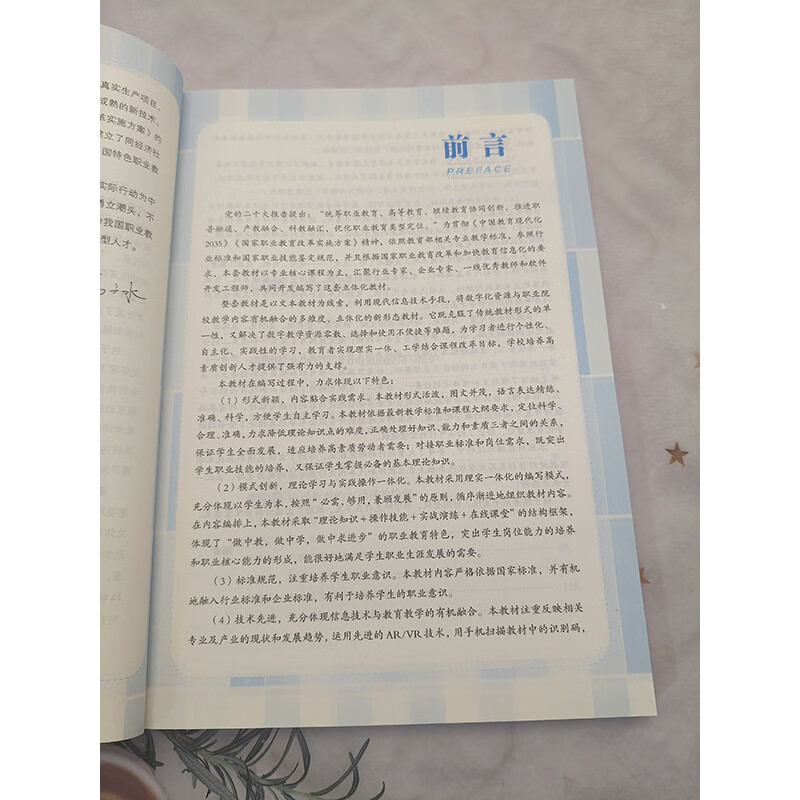 真实生产项目、
成熟的新技术、
革实施方案》的
建立了同经济社
国特色职业教
实际行动为中
勇立潮头，不
我国职业教
型人才。
前言
PREFACE
党的二十大报告提出：“统筹职业教育、高等教育、继续教育协同创新，推进职
普融通、产教融合、科教融汇，优化职业教育类型定位。”为贯彻《中国教育现代化
2035》《国家职业教育改革实施方案》精神，依照教育部相关专业教学标准，参照行
业标准和国家职业技能鉴定规范，并且根据国家职业教育改革和加快教育信息化的要
求，本套教材以专业核心课程为主，汇聚行业专家、企业专家、一线优秀教师和软件
开发工程师，共同开发编写了这套立体化教材。
整套教材是以文本教材为线索，利用现代信息技术手段，将数字化资源与职业院
校教学内容有机融合的多维度、立体化的新形态教材。它既克服了传统教材形式的单
一性，又解决了数字教学资源零数、选择和使用不便捷等难题，为学习者进行个性化、
自主化、实践性的学习，教育者实现理实一体、工学结合课程改革目标，学校培养高
素质创新人才提供了强有力的支撑。
本教材在编写过程中，力求体现以下特色：
（1）形式新颖，内容贴合实践需求。本教材形式活泼，图文并茂，语言表达精练、
准确、科学，方便学生自主学习。本教材依据最新教学标准和课程大纲要求，定位科学、
合理、准确，力求降低理论知识点的难度，正确处理好知识、能力和素质三者之间的关系，
保证学生全面发展，适应培养高素质劳动者需要；对接职业标准和岗位需求，既突出
学生职业技能的培养，又保证学生掌握必备的基本理论知识。
（2）模式创新，理论学习与实践操作一体化。本教材采用理实一体化的编写模式，
充分体现以学生为本，按照“必需，够用，兼顾发展”的原则，循序渐进地组织教材内容。
在内容编排上，本教材采取“理论知识+操作技能+实战演练+在线课堂”的结构框架，
体现了“做中教，做中学，做中求进步”的职业教育特色，突出学生岗位能力的培养
和职业核心能力的形成，能很好地满足学生职业生涯发展的需要。
（3）标准规范，注重培养学生职业意识。本教材内容严格依据国家标准，并有机
地融入行业标准和企业标准，有利于培养学生的职业意识。
（4）技术先进，充分体现信息技术与教育教学的有机融合。本教材注重反映相关
专业及产业的现状和发展趋势，运用先进的AR/VR技术，用手机扫描教材中的识别码，